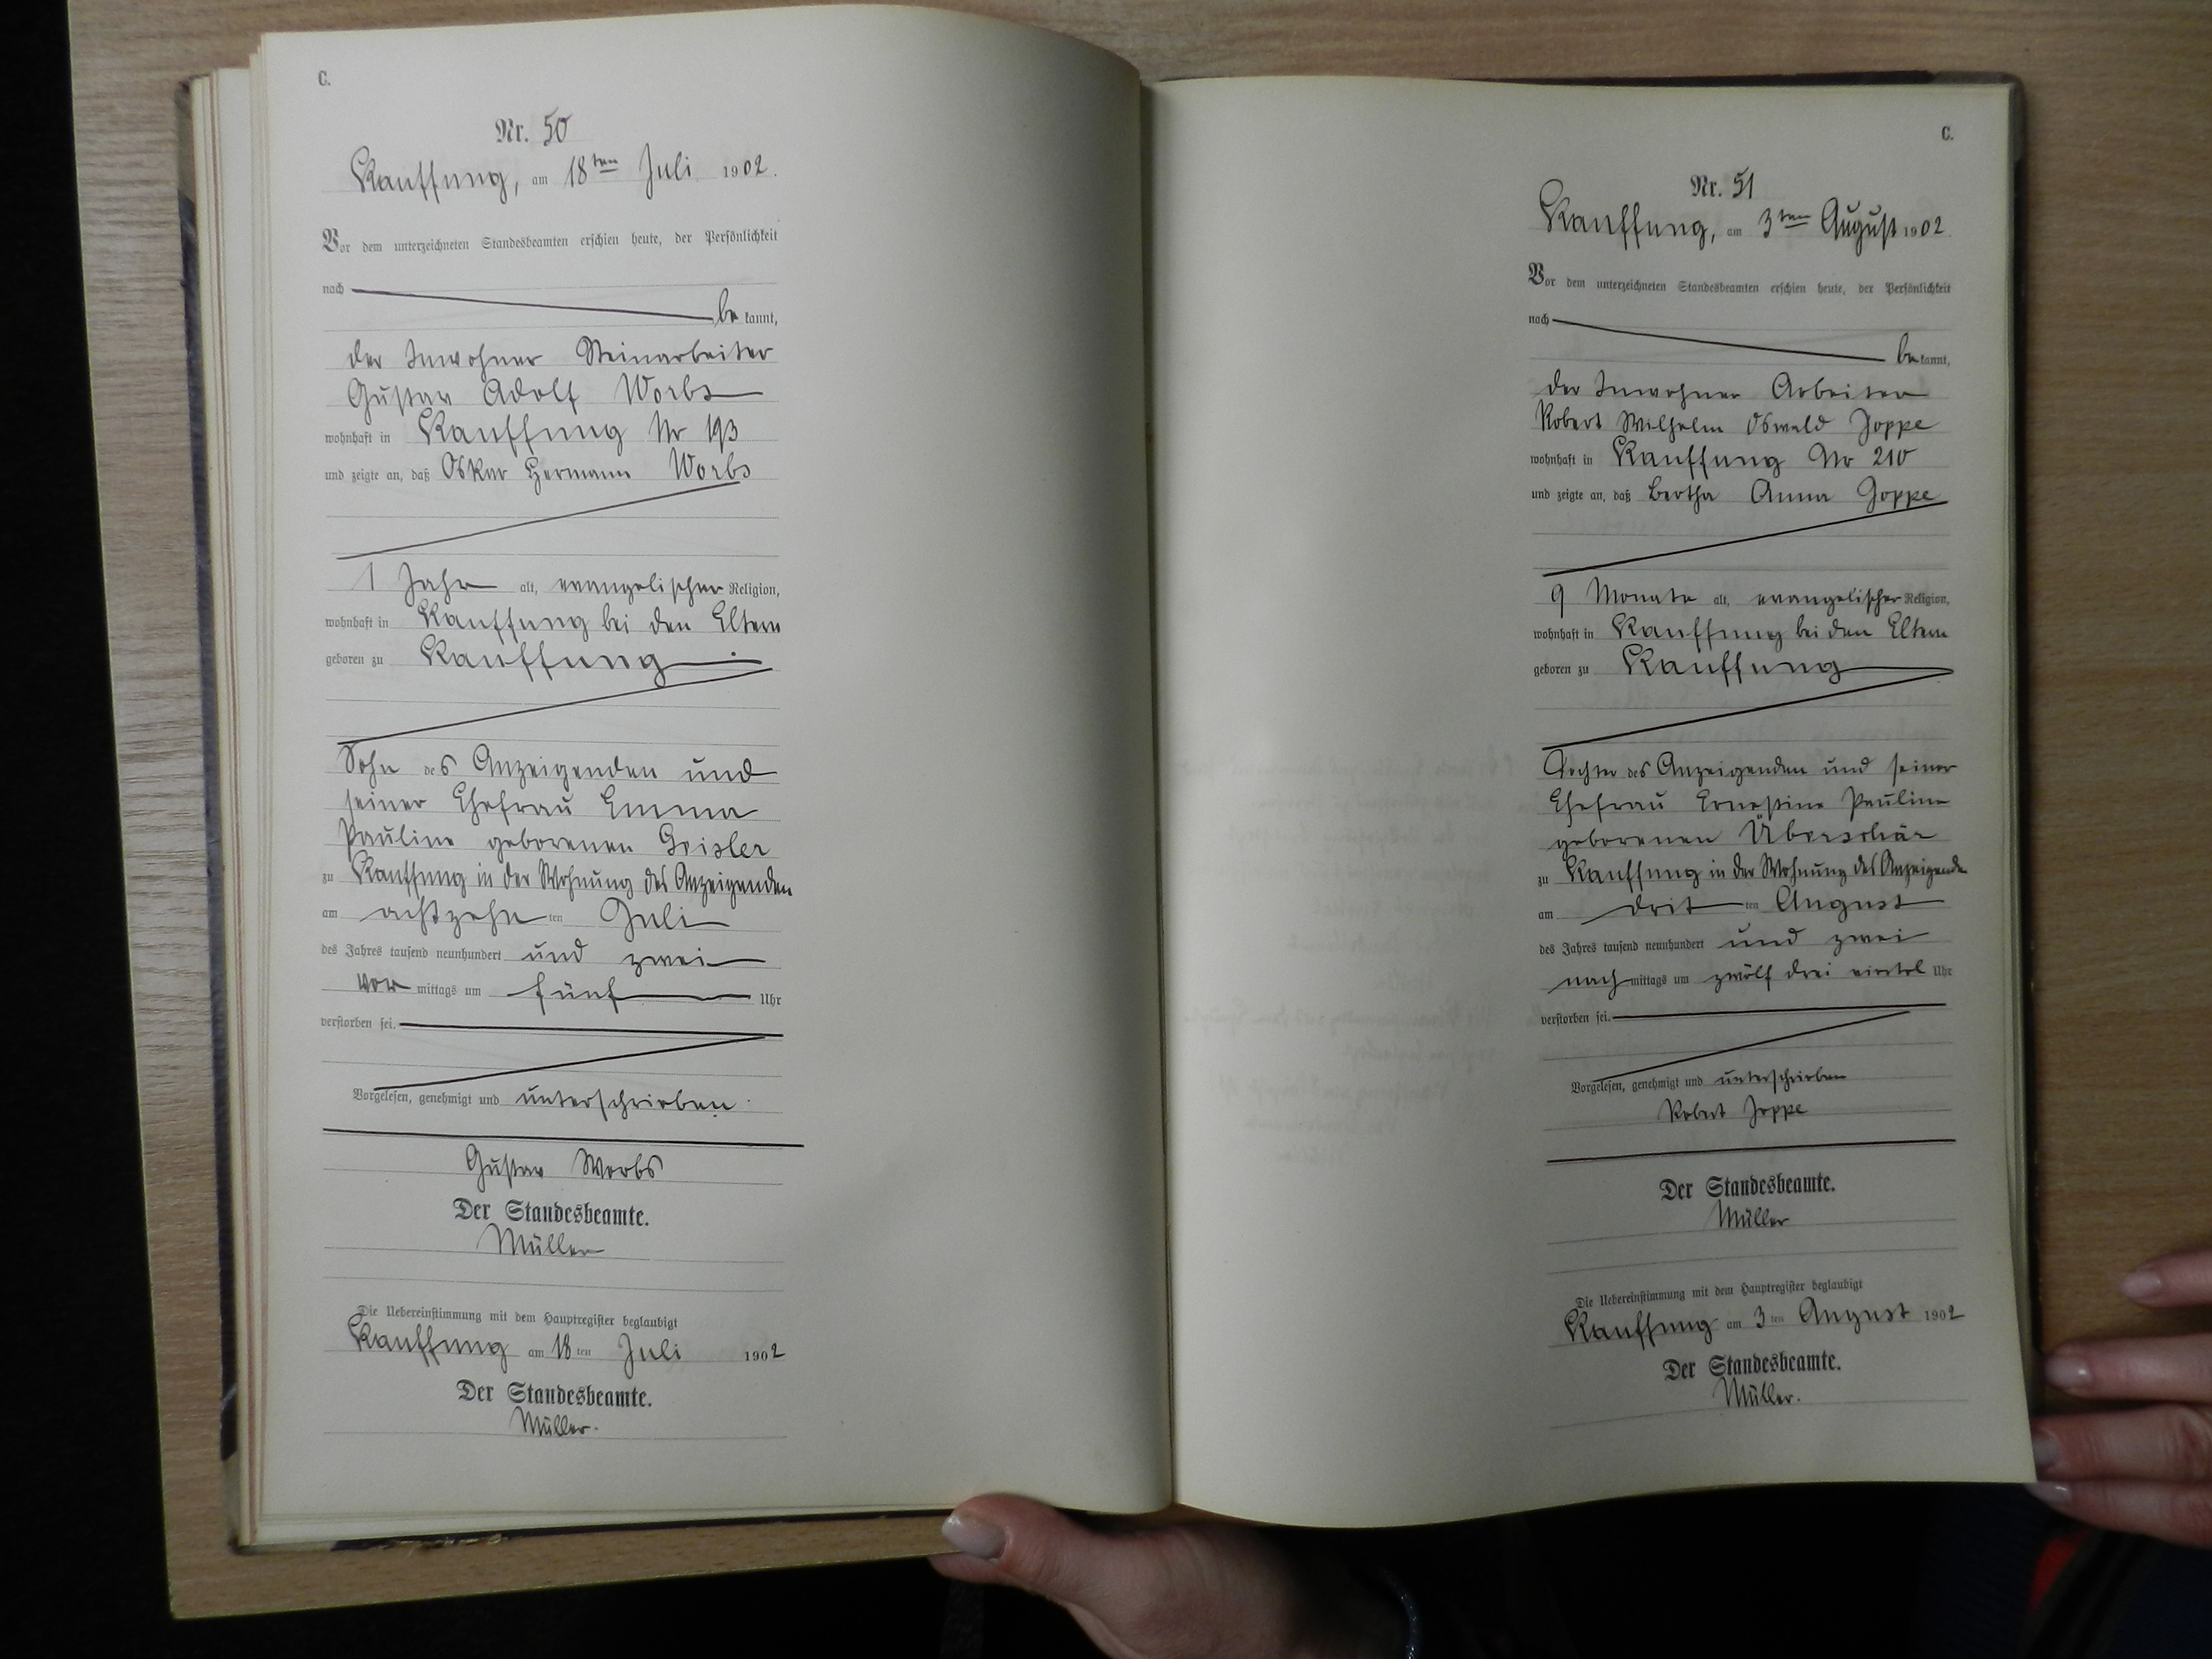 C.
Nr. 50
Kauffung, am 18ten Juli 1902.
Vor dem unterzeichneten Standesbeamten erschien heute, der Persönlichkeit
nach
be kannt,
der Inwohner Steinarbeiter
Gustav Adolf Worbs
wohnhaft in Kauffung Nr 193
und zeigte an, daß Oskar Hermann Worbs
1 Jahr alt, evangelischer Religion,
wohnhaft in Kauffung bei den Eltern
geboren zu Kauffung
Sohn des Anzeigenden und
seiner Ehefrau Emma
Pauline geborenen Geisler
zu Kauffung in der Wohnung des Anzeigenden
am achtzehn ten Juli
des Jahres tausend neunhundert und zwei
vor mittags um fünf Uhr
verstorben sei.
Vorgelesen, genehmigt und unterschrieben.
Gustav Worbs
Der Standesbeamte.
Müller
Die Uebereinstimmung mit dem Hauptregister beglaubigt
Kauffung am 18 ten Juli 1902
Der Standesbeamte.
Müller.
C.
Nr. 51
Kauffung, am 3ten August 1902
Vor dem unterzeichneten Standesbeamten erschien heute, der Persönlichkeit
nach
be kannt,
der Inwohner Arbeiter
Robert Wilhelm Oswald Joppe
wohnhaft in Kauffung Nr 210
und zeigte an, daß Bertha Anna Joppe
9 Monate alt, evangelischer Religion,
wohnhaft in Kauffung bei den Eltern
geboren zu Kauffung
Tochter des Anzeigenden und seiner
Ehefrau Ernestine Pauline
geborenen Überschär
zu Kauffung in der Wohnung des Anzeigenden
am drit ten August
des Jahres tausend neunhundert und zwei
nach mittags um zwölf drei viertel Uhr
verstorben sei.
Vorgelesen, genehmigt und unterschrieben
Robert Joppe
Der Standesbeamte.
Müller
Die Uebereinstimmung mit dem Hauptregister beglaubigt
Kauffung am 3 ten August 1902
Der Standesbeamte.
Müller.